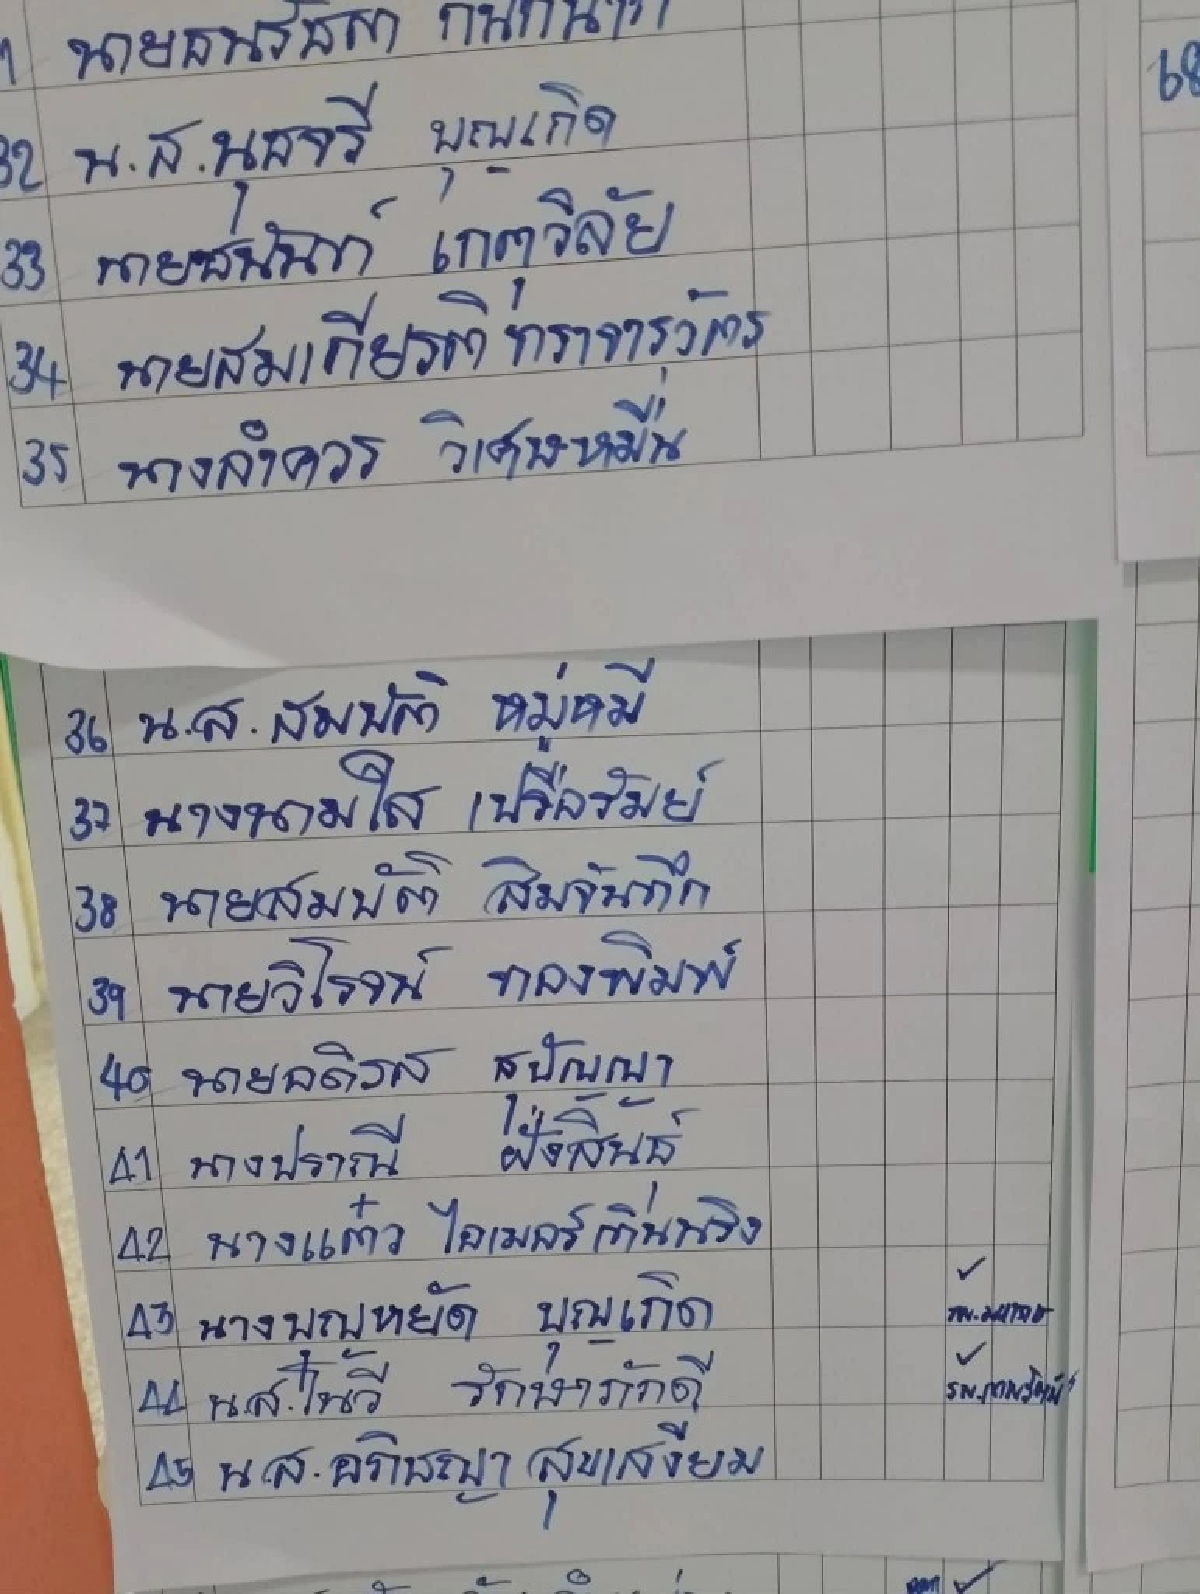 68
32 น.ส.นุสจรี บุญเกิด
33 นายชนันท์ เกตุวิลัย
34 นายสมเกียรติ ทราจารุวัตร
35 นางลำควร วิเศษหมื่น
36 น.ส.สมบัติ หมู่หมี
37 นางนามใส เปรือรัมย์
38 นายสมบัติ สิมจันทึก
39 นายวิโรจน์ ทองพิมพ์
40 นายอดิรส สุปัญญา
41 นางปราณี ฝั่งสินธุ์
42 นางแต๋ว ไอเมอร์
43 นางบุญหยัด บุญเกิด
44 น.ส. รักษาภักดี
45 น.ส.อภิชญา สุขเสงี่ยม